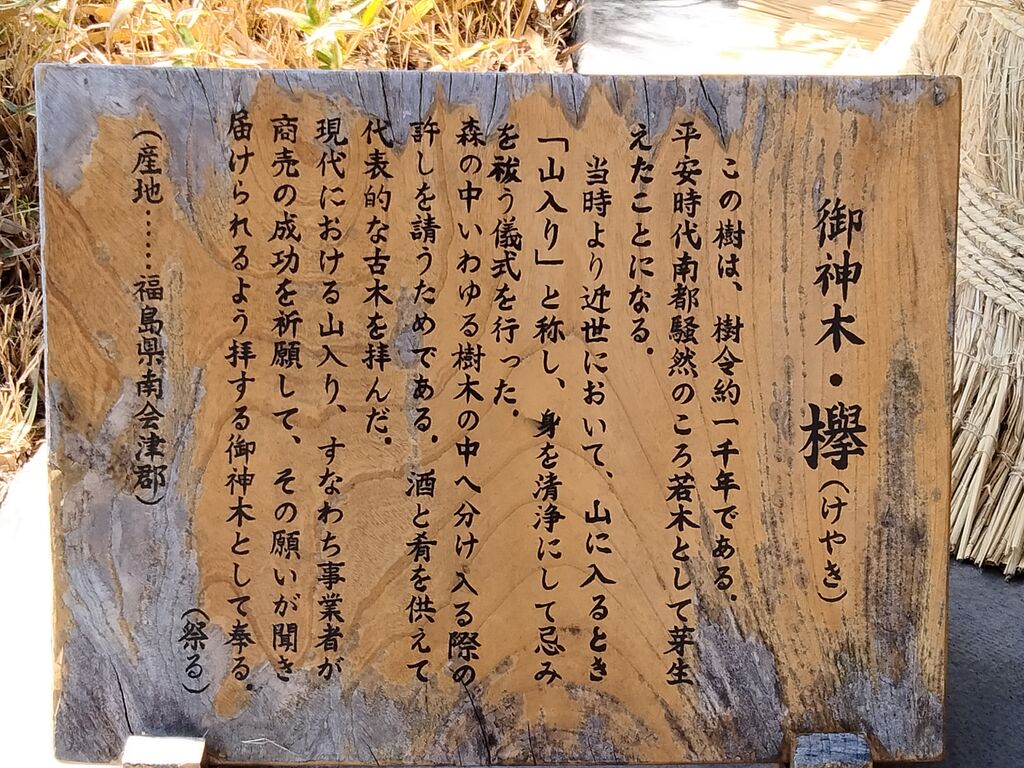 御神木・欅(けやき)
この樹は、樹令約一千年である.
平安時代南都騒然のころ若木として芽生
えたことになる.
当時より近世において、山に入るとき
「山入り」と称し、身を清浄にして忌み
を祓う儀式を行った.
森の中いわゆる樹木の中へ分け入る際の
許しを請うためである.酒と肴を供えて
代表的な古木を拝んだ.
現代における山入り、すなわち事業者が
商売の成功を祈願して、その願いが聞き
届けられるよう拝する御神木として奉る.
(祭る)
(産地……福島県南会津郡)